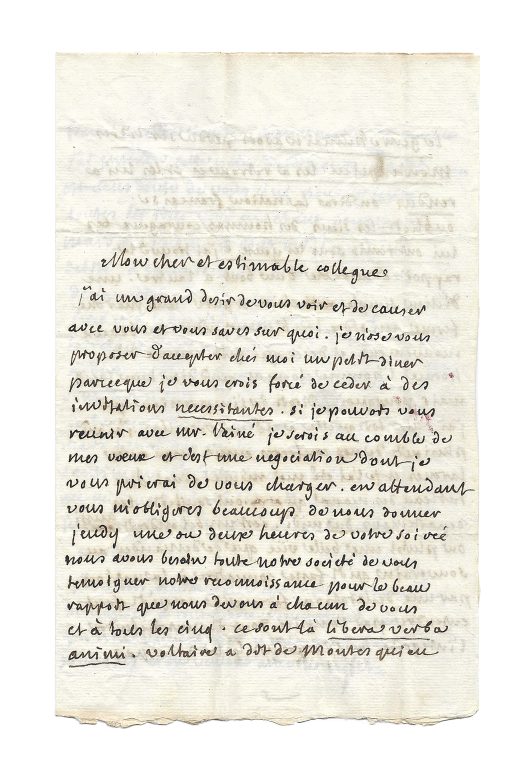 Mon cher et estimable collegue
j'ai un grand desir de vous voir et de causer
avec vous et vous saves sur quoi. je n'ose vous
proposer d'accepter chés moi un petit diner
parceeque je vous crois forcé de ceder à des
invitations necessitantes. si je pouvois vous
reunir avec mr. lainé je serois au comble de
mes voeux et c'est une negociation dont je
vous prierai de vous charger. en attendant
vous m'obligeres beaucoup de nous donner
jeudy une ou deux heures de votre soireé
nous avons besoin toute notre société de vous
temoigner notre reconnoissance pour le beau
rapport que nous devons à chacun de vous
et à tous les cinq. ce sont là libera verba
animi. voltaire a dit de Montesquieu